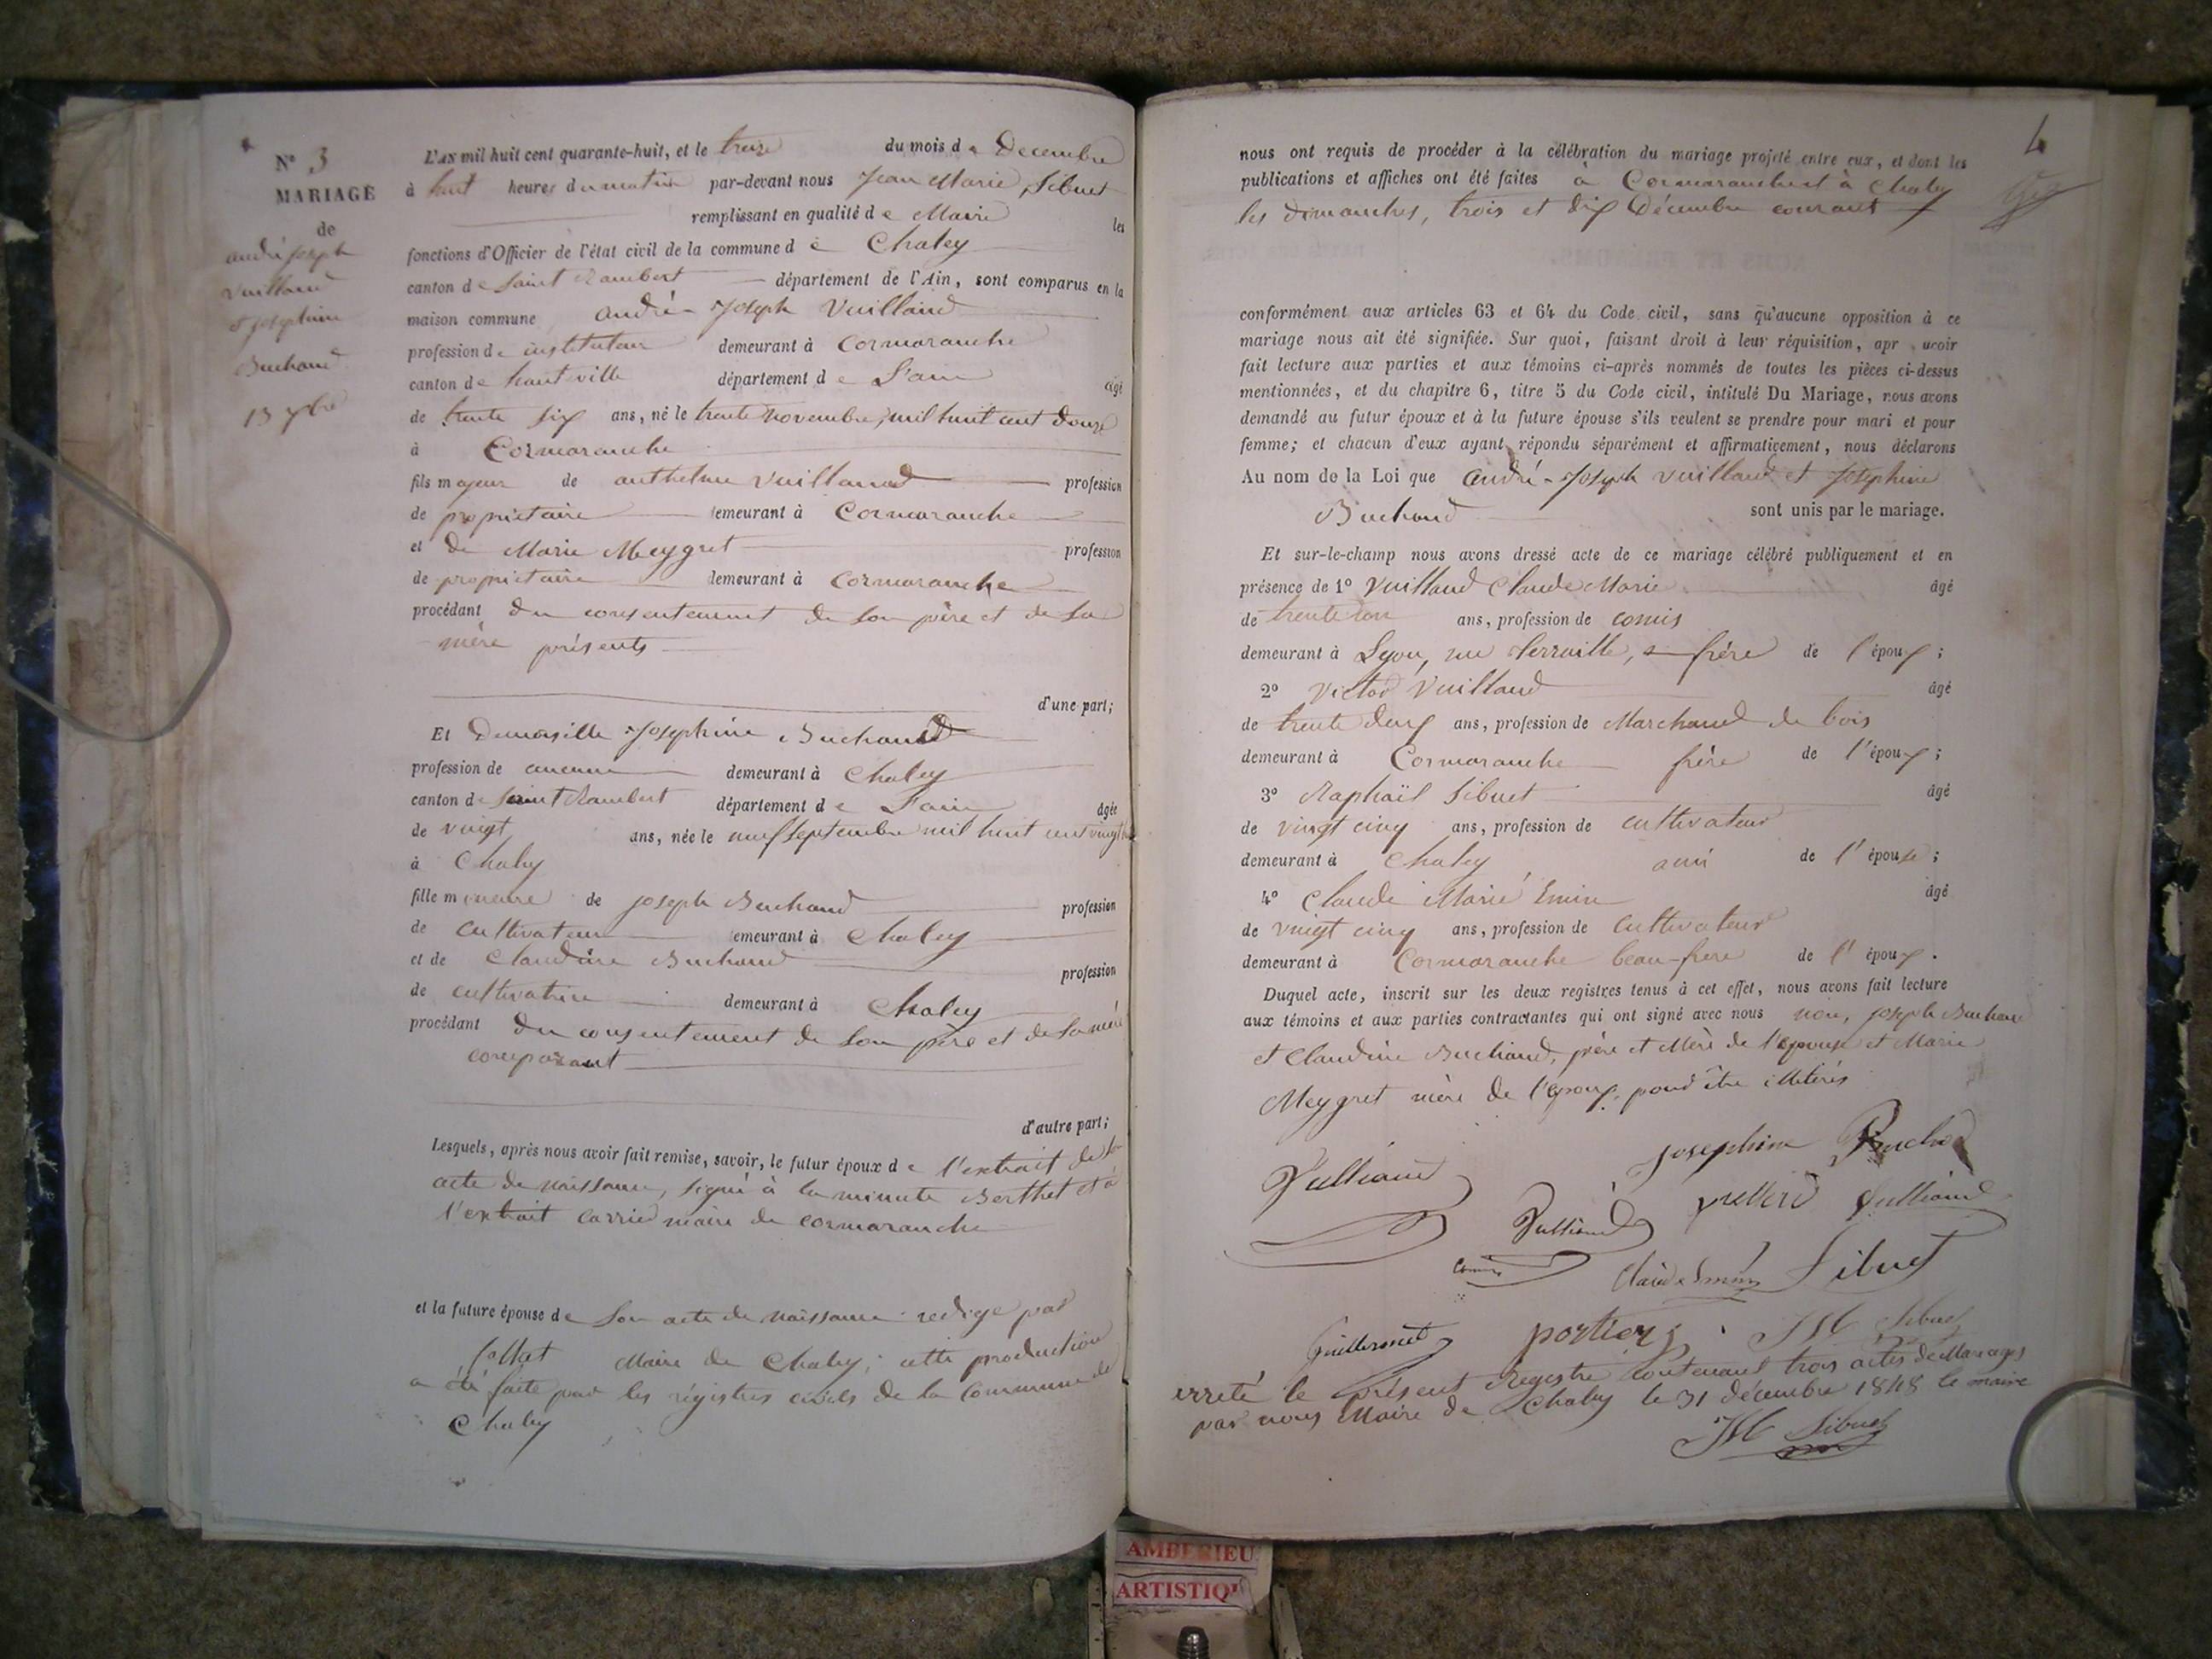 N° 3
MARIAGE
de
andré joseph
Vuilland
et josephine
Buchand
13 xbre
L'AN mil huit cent quarante-huit, et le treize du mois de Decembre
à huit heures du matin par-devant nous Jean Marie Sibuet
remplissant en qualité de Maire les
fonctions d'Officier de l'état civil de la commune de Chaley
canton de Saint Rambert département de l'Ain, sont comparus en la
maison commune andré-Joseph Vuilland
profession de instituteur demeurant à Cormaranche
canton de hauteville département de L'ain âgé
de trente six ans, né le trente novembre mil huit cent douze
à Cormaranche
fils majeur de anthelme Vuilland profession
de propriétaire demeurant à Cormaranche
et de Marie Meygret profession
de propriétaire demeurant à Cormaranche
procédant du consentement de son père et de sa
mère présents
d'une part;
Et Demoiselle Josephine Buchand
profession de aucune demeurant à Chaley
canton de Saint Rambert département de L'ain âgée
de vingt ans, née le neuf Septembre mil huit cent vingt
à Chaley
fille mineure de joseph Buchand profession
de cultivateur demeurant à Chaley
et de Claudine Buchand profession
de cultivatrice demeurant à Chaley
procédant du consentement de son père et de sa mère
comparant
d'autre part;
Lesquels, après nous avoir fait remise, savoir, le futur époux de l'extrait de son
acte de naissance, signé à la minute Berthet et à
l'extrait Carrier maire de cormaranche
et la future épouse de son acte de naissance redigé par
Maire de Chaley; cette production
a été faite par les régistres civils de la Commune de
Chaley
4
nous ont requis de procéder à la célébration du mariage projeté entre eux, et dont les
publications et affiches ont été faites à Cormaranche et à Chaley
les dimanches, trois et dix Décembre courant
conformément aux articles 63 et 64 du Code civil, sans qu'aucune opposition à ce
mariage nous ait été signifiée. Sur quoi, faisant droit à leur réquisition, apr avoir
fait lecture aux parties et aux témoins ci-après nommés de toutes les pièces ci-dessus
mentionnées, et du chapitre 6, titre 5 du Code civil, intitulé Du Mariage, nous avons
demandé au futur époux et à la future épouse s'ils veulent se prendre pour mari et pour
femme; et chacun d'eux ayant répondu séparément et affirmativement, nous déclarons
Au nom de la Loi que andré-Joseph Vuilland et Josephine
Buchand sont unis par le mariage.
Et sur-le-champ nous avons dressé acte de ce mariage célébré publiquement et en
présence de 1° Vuilland Claude Marie âgé
de trente ans, profession de comis
demeurant à Lyon, rue ferraille, frère de l'époux;
2° Victor Vuilland âgé
de trente deux ans, profession de Marchand de bois
demeurant à Cormaranche frère de l'époux;
3° Raphaël Sibuet âgé
de vingt cinq ans, profession de cultivateur
demeurant à Chaley ami de l'épouse;
4° Claude Marie Emin âgé
de vingt cinq ans, profession de cultivateur
demeurant à Cormaranche beau-frère de l'époux.
Duquel acte, inscrit sur les deux registres tenus à cet effet, nous avons fait lecture
aux témoins et aux parties contractantes qui ont signé avec nous non, joseph Buchand
et Claudine Buchand, père et Mère de l'épouse et Marie
Meygret mère de l'époux, pour être illitérés
Josephine Buchd
Vulliand
Vulliand
Vulliand
Sibuet
portier
JM Sibuet
arreté le présent Registre contenant trois actes de Mariages
par nous Maire de Chaley le 31 décembre 1848 le maire
JM Sibuet
AMBERIEU
ARTISTIQ